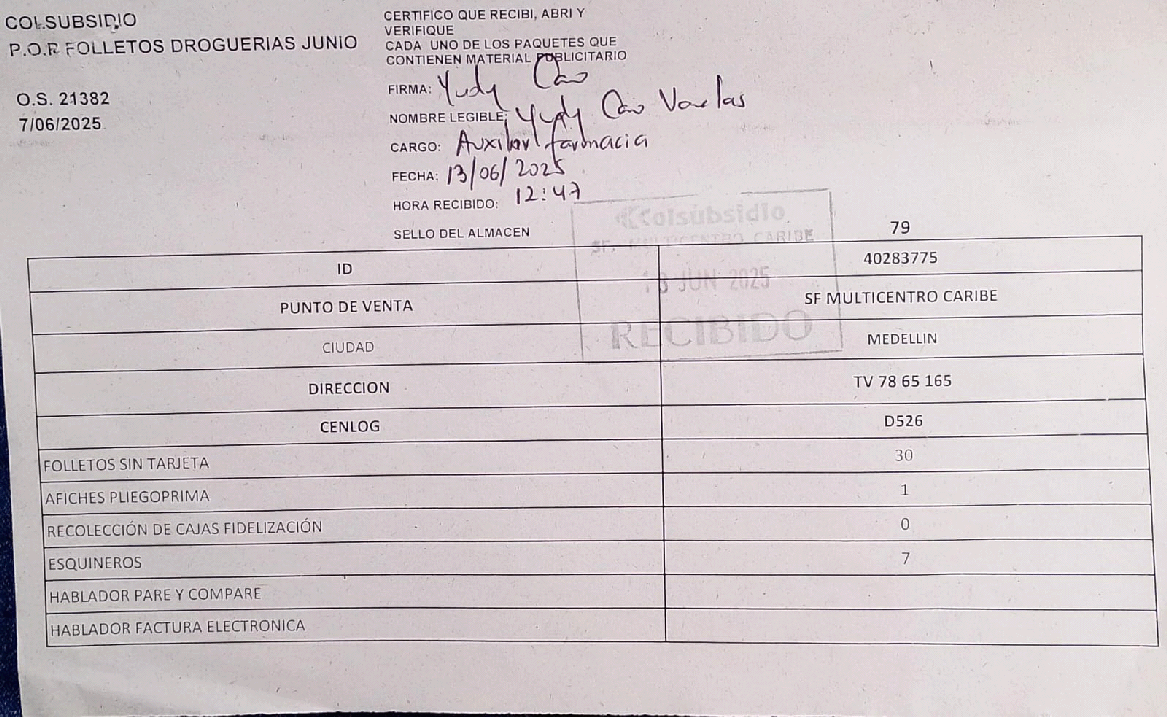 COLSUBSIDIO
P.O.P FOLLETOS DROGUERIAS JUNIO
O.S. 21382
7/06/2025
CERTIFICO QUE RECIBI, ABRI Y
VERIFIQUE
CADA UNO DE LOS PAQUETES QUE
CONTIENEN MATERIAL PUBLICITARIO
FIRMA: Yudy Cano
NOMBRE LEGIBLE: Yudy Cano
CARGO: Auxiliar farmacia
FECHA: 13/06/2025
HORA RECIBIDO: 12:47
SELLO DEL ALMACEN
Colsubsidio
SF. MULTICENTRO CARIBE
13 JUN 2025
RECIBIDO
79
ID 40283775
PUNTO DE VENTA SF MULTICENTRO CARIBE
CIUDAD MEDELLIN
DIRECCION TV 78 65 165
CENLOG D526
FOLLETOS SIN TARJETA 30
AFICHES PLIEGOPRIMA 1
RECOLECCIÓN DE CAJAS FIDELIZACIÓN 0
ESQUINEROS 7
HABLADOR PARE Y COMPARE
HABLADOR FACTURA ELECTRONICA